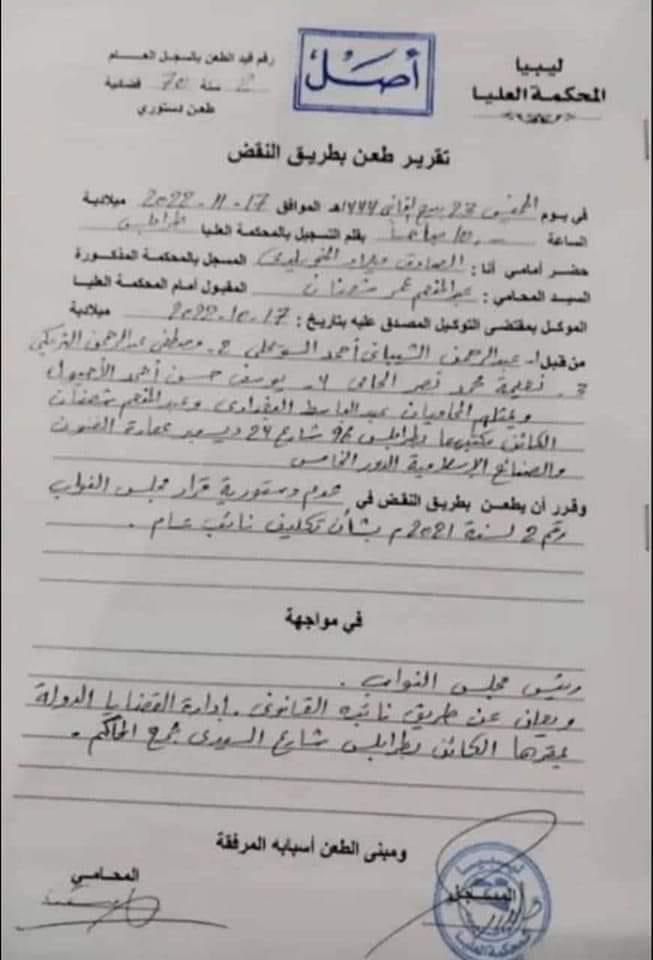 ليبيا
المحكمة العليا
أصل
رقم قيد الطعن بالسجل العام
2 سنة 70 قضائية
طعن دستوري
تقرير طعن بطريق النقض
في يوم الخميس 23 ربيع الثاني 1444هـ الموافق 17-11-2022 ميلادية
الساعة 10:00 صباحا بقلم التسجيل بالمحكمة العليا طرابلس
حضر أمامي أنا: الصادق ميلاد المسجل بالمحكمة المذكورة
السيد المحامي: عبدالمنعم عمر المقبول أمام المحكمة العليا
الموكل بمقتضى التوكيل المصدق عليه بتاريخ: 17-10-2022 ميلادية
من قبل 1- عبدالرحمن الشيباني أحمد السويحلي 2- مصطفى عبدالرحمن التريكي
3- نعيمة محمد نصر الحامي 4- يوسف حسن أحمد
ويمثلهم المحاميان عبدالباسط وعبدالمنعم
الكائن مكتبهما بطرابلس 96 شارع 24 ديسمبر عمارة الفنون
والصنائع الإسلامية الدور الخامس
وقرر أن يطعن بطريق النقض في عدم دستورية قرار مجلس النواب
رقم 2 لسنة 2021م بشأن تكليف نائب عام.
في مواجهة
رئيس مجلس النواب.
ويعلن عن طريق نائبه القانوني. إدارة القضايا الدولة
بمقرها الكائن بطرابلس شارع السيدي مجمع المحاكم.
ومبنى الطعن أسبابه المرفقة
المحامي
المسجل
ليبيا
المحكمة العليا